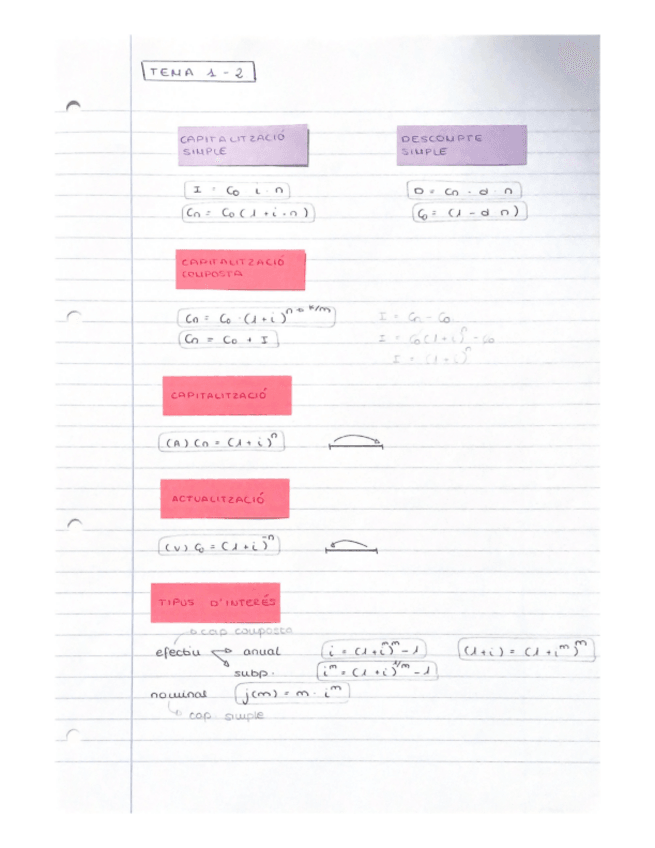 TEMA 1-2
CAPITALITZACIÓ
SIMPLE
DESCOMPTE
SIMPLE
I = C₀ i · n
D = Cn · d · n
Cn = C₀ (1 + i · n)
C₀ = (1 - d n)
CAPITALITZACIÓ
COMPOSTA
Cn = C₀ · (1 + i)ⁿ⁼ᵏ/ᵐ
I = Cn - C₀
Cn = C₀ + I
I = C₀(1+i)ⁿ - C₀
I = (1+i)ⁿ
CAPITALITZACIÓ
(A) Cn = (1 + i)ⁿ
ACTUALITZACIÓ
(V) C₀ = (1 + i)⁻ⁿ
TIPUS D'INTERÉS
cap composta
efectiu anual i = (1 + iᵐ)ᵐ - 1 (1+i) = (1 + iᵐ)ᵐ
subp. iᵐ = (1 + i)¹/ᵐ - 1
nominal j(m) = m · iᵐ
cap. simple